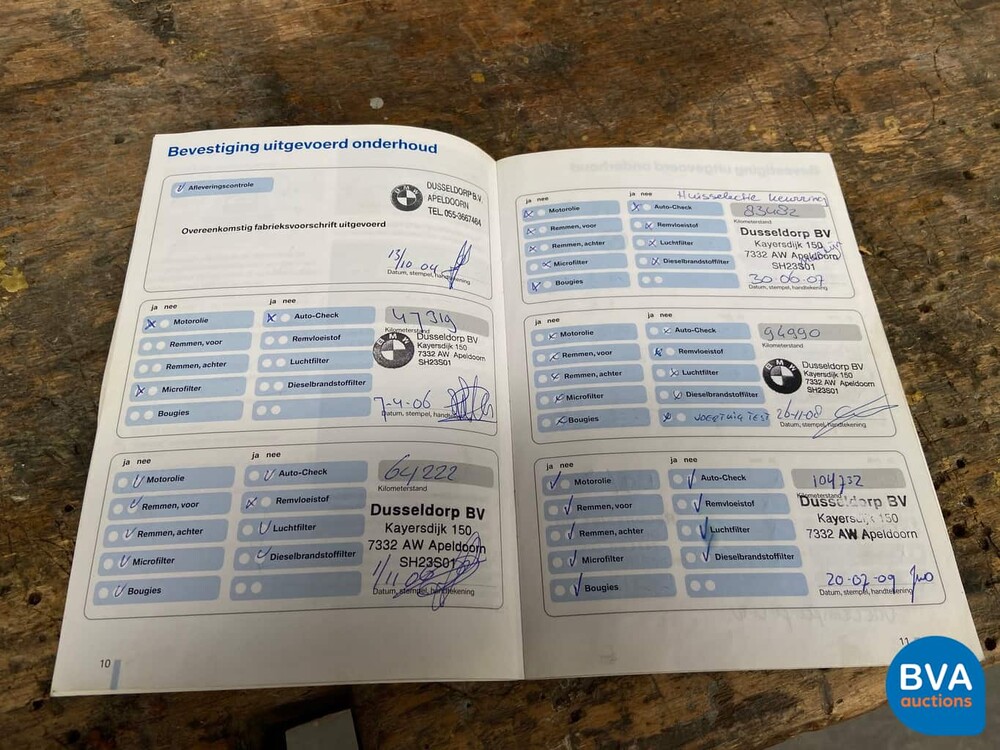 Bevestiging uitgevoerd onderhoud
Afleveringscontrole
BMW
DUSSELDORP B.V.
APELDOORN
TEL. 055-3667484
Overeenkomstig fabrieksvoorschrift uitgevoerd
13/10 04
Datum, stempel, handtekening
ja nee
ja nee
Motorolie
Auto-Check
47319
Kilometerstand
Remmen, voor
Remvloeistof
BMW
Dusseldorp BV
Kayersdijk 150
7332 AW Apeldoorn
SH23S01
Remmen, achter
Luchtfilter
Microfilter
Dieselbrandstoffilter
7-4-06
Datum, stempel, handtekening
Bougies
ja nee
ja nee
Motorolie
Auto-Check
64222
Kilometerstand
Remmen, voor
Remvloeistof
Dusseldorp BV
Kayersdijk 150
7332 AW Apeldoorn
SH23S01
Remmen, achter
Luchtfilter
Microfilter
Dieselbrandstoffilter
1/11 06
Datum, stempel, handtekening
Bougies
10
ja nee
ja nee
Huisselectie keuring
Motorolie
Auto-Check
83482
Kilometerstand
Remmen, voor
Remvloeistof
Dusseldorp BV
Kayersdijk 150
7332 AW Apeldoorn
SH23S01
Remmen, achter
Luchtfilter
Microfilter
Dieselbrandstoffilter
30-06-07
Datum, stempel, handtekening
Bougies
ja nee
ja nee
Motorolie
Auto-Check
94990
Kilometerstand
Remmen, voor
Remvloeistof
BMW
Dusseldorp BV
Kayersdijk 150
7332 AW Apeldoorn
SH23S01
Remmen, achter
Luchtfilter
Microfilter
Dieselbrandstoffilter
Bougies
VOERTUIG TEST
26-11-08
Datum, stempel, handtekening
ja nee
ja nee
Motorolie
Auto-Check
104732
Kilometerstand
Remmen, voor
Remvloeistof
Dusseldorp BV
Kayersdijk 150
7332 AW Apeldoorn
Remmen, achter
Luchtfilter
Microfilter
Dieselbrandstoffilter
20-07-09
Datum, stempel, handtekening
Bougies
11
BVA
auctions